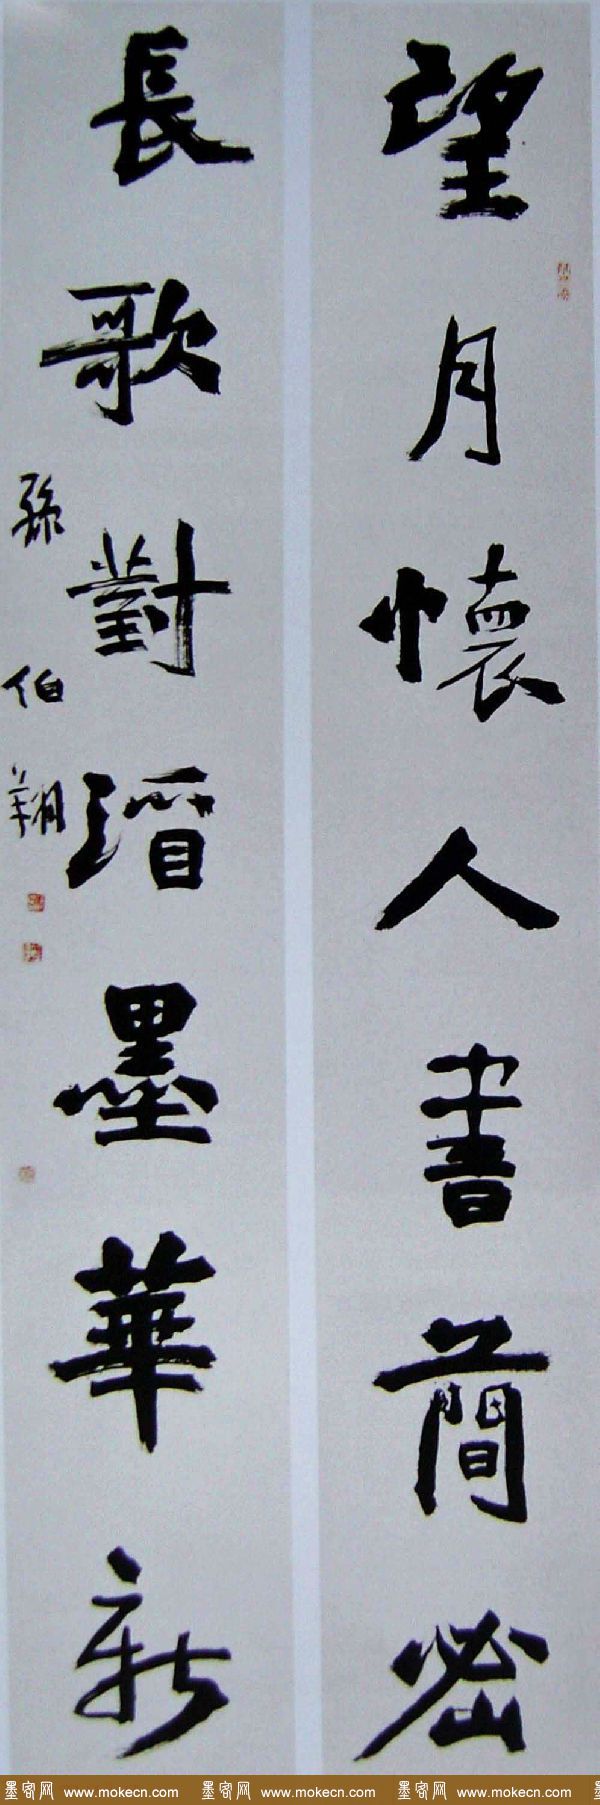 望月懷人書簡密
長歌對酒墨華新
孫伯翔
墨客网 www.mokecn.com 墨客网 www.mokecn.com 墨客网 www.mokecn.com